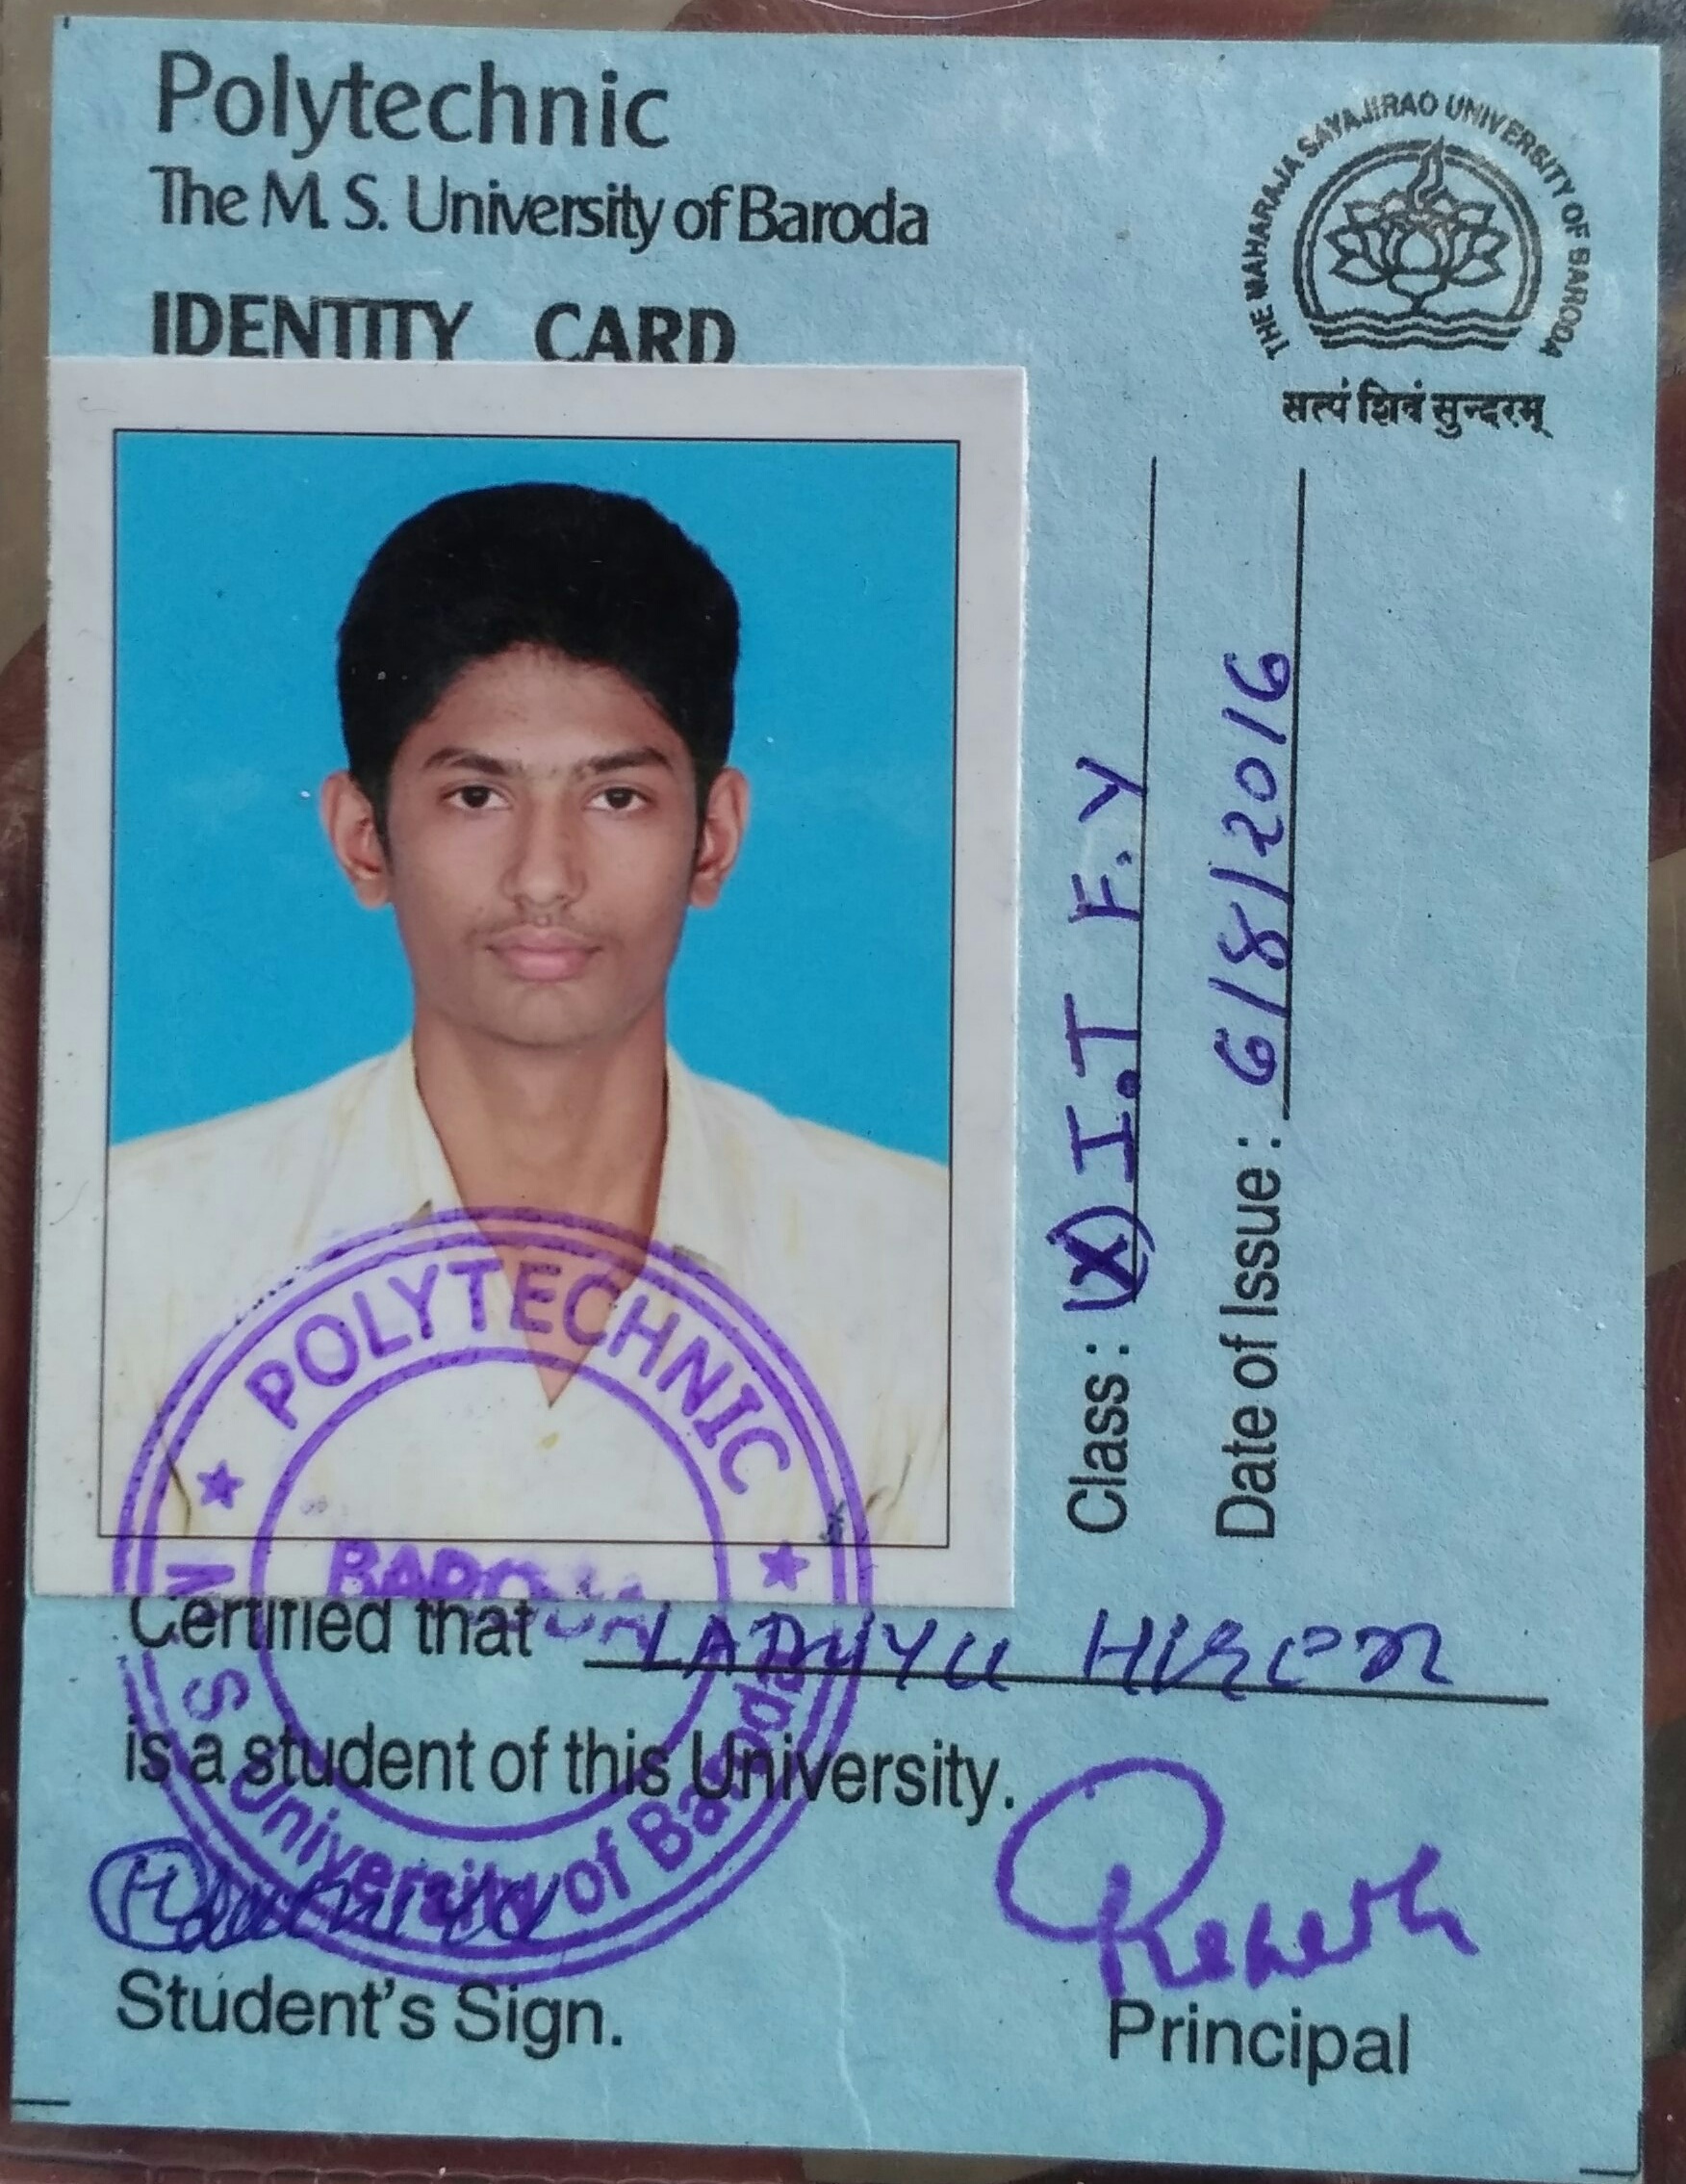 Polytechnic
The M. S. University of Baroda
IDENTITY CARD
THE MAHARAJA SAYAJIRAO UNIVERSITY OF BARODA
सत्यं शिवं सुन्दरम्
Class : I.T F.Y
Date of Issue : 6/8/2016
POLYTECHNIC
BARODA
M S University of Baroda
Certified that HIREN
is a student of this University.
Student's Sign.
Principal